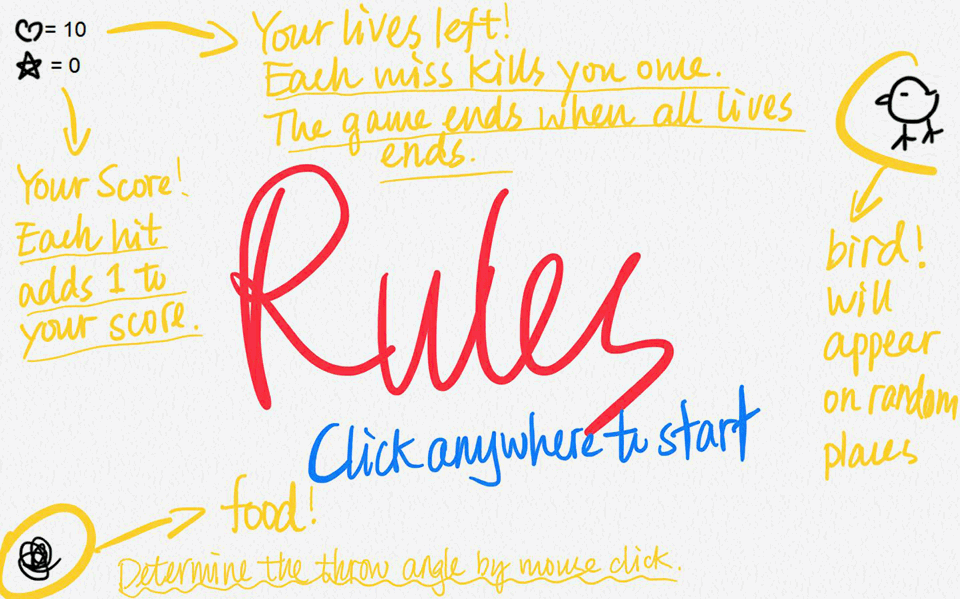 = 10
= 0
Your lives left!
Each miss kills you once.
The game ends when all lives
ends.
Your Score!
Each hit
adds 1 to
your score.
Rules
Click anywhere to start
bird!
will
appear
on random
places
food!
Determine the throw angle by mouse click.